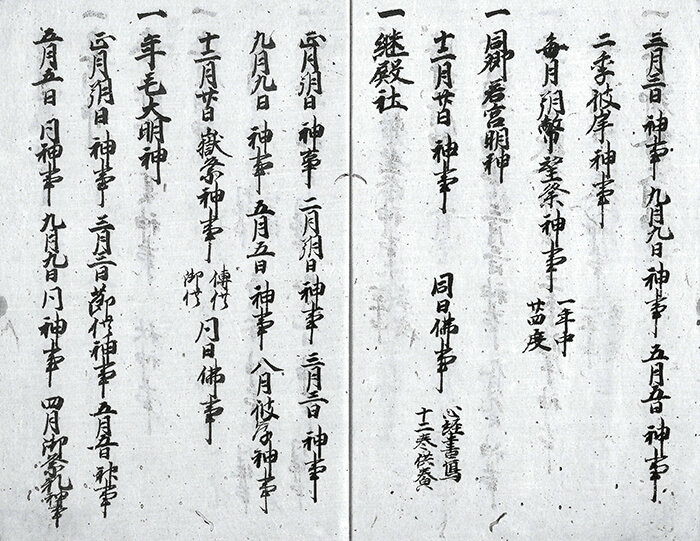 一 三月三日神事 九月九日神事 五月五日神事
二季彼岸神事
毎月朔幣望祭神事 一年中
廿四度
一 同郷若宮明神
十二月廿日神事 同日佛事 心経書写
十二巻供養
一 継殿社
正月朔日神事 二月朔日神事 三月三日神事
九月九日神事 五月五日神事 八月彼岸神事
十二月廿日嶽祭神事 傳供
御供 同日佛事
一 年毛大明神
正月朔日神事 三月三日節供神事 五月五日神事
五月五日同神事 九月九日同神事 四月御祭礼神事